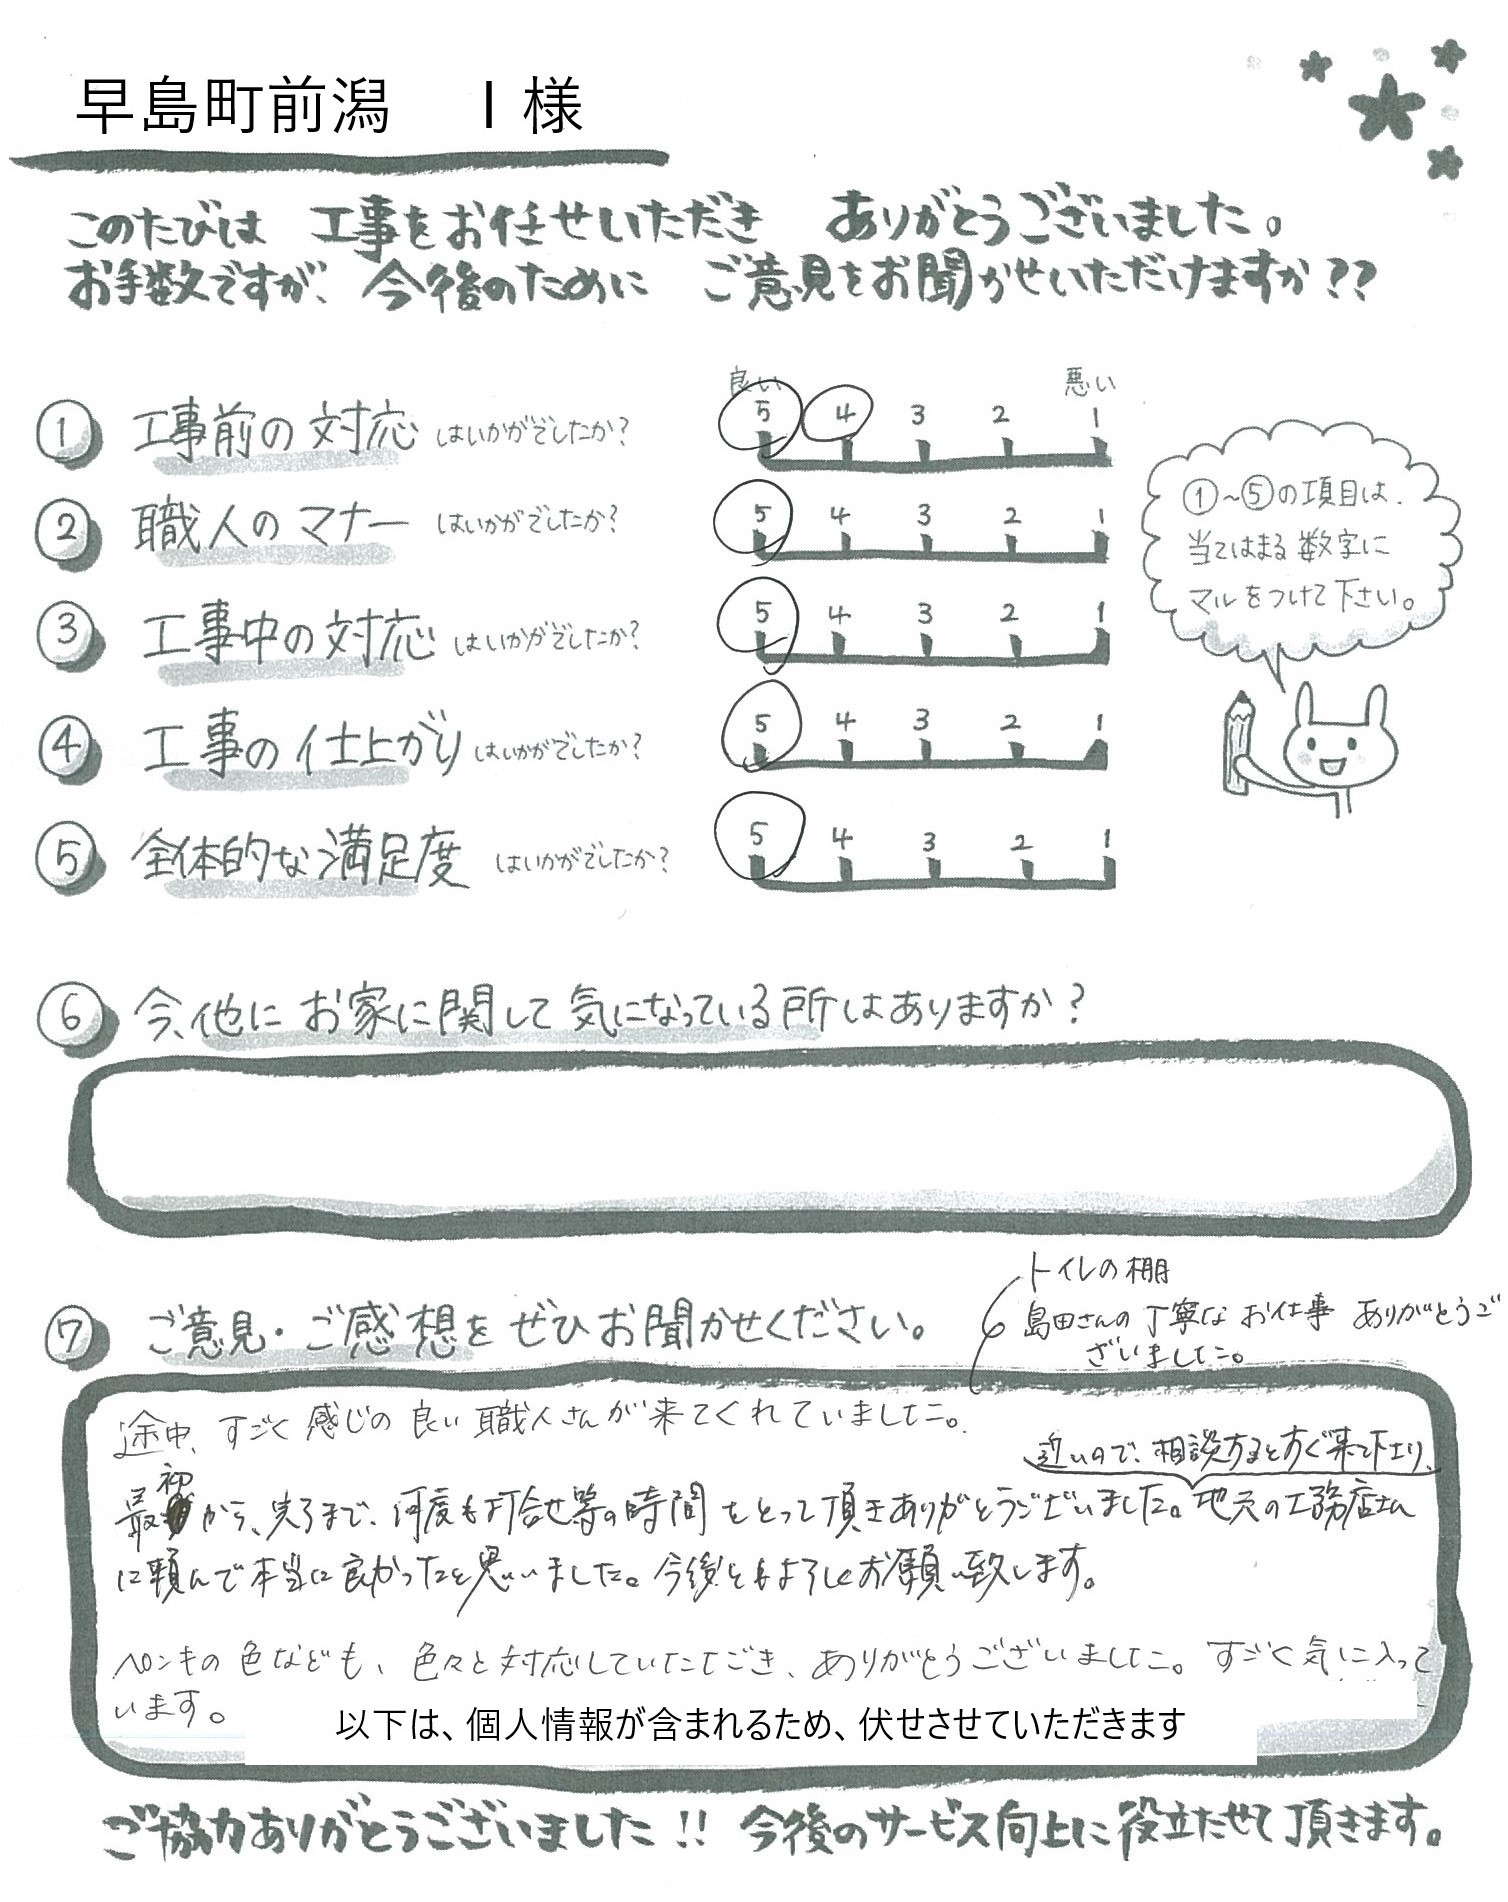 早島町前潟　I 様
このたびは 工事をお任せいただき ありがとうございました。
お手数ですが、今後のために ご意見をお聞かせいただけますか??
良い 悪い
① 工事前の対応 はいかがでしたか? 5 4 3 2 1
② 職人のマナー はいかがでしたか? 5 4 3 2 1
③ 工事中の対応 はいかがでしたか? 5 4 3 2 1
④ 工事の仕上がり はいかがでしたか? 5 4 3 2 1
⑤ 全体的な満足度 はいかがでしたか? 5 4 3 2 1
①~⑤の項目は、
当てはまる数字に
マルをつけて下さい。
⑥ 今、他にお家に関して気になっている所はありますか?
⑦ ご意見・ご感想をぜひお聞かせください。
トイレの棚
島田さんの丁寧なお仕事 ありがとうご
ざいました。
途中、すごく感じの良い職人さんが来てくれていました。
近いので、相談するとすぐ来て下さり、
最初から、完了まで、何度も打合せ等の時間をとって頂きありがとうございました。地元の工務店さん
に頼んで本当に良かったと思いました。今後ともよろしくお願い致します。
ペンキの色なども、色々と対応していただき、ありがとうございました。すごく気に入って
います。
以下は、個人情報が含まれるため、伏せさせていただきます
ご協力ありがとうございました!! 今後のサービス向上に役立たせて頂きます。